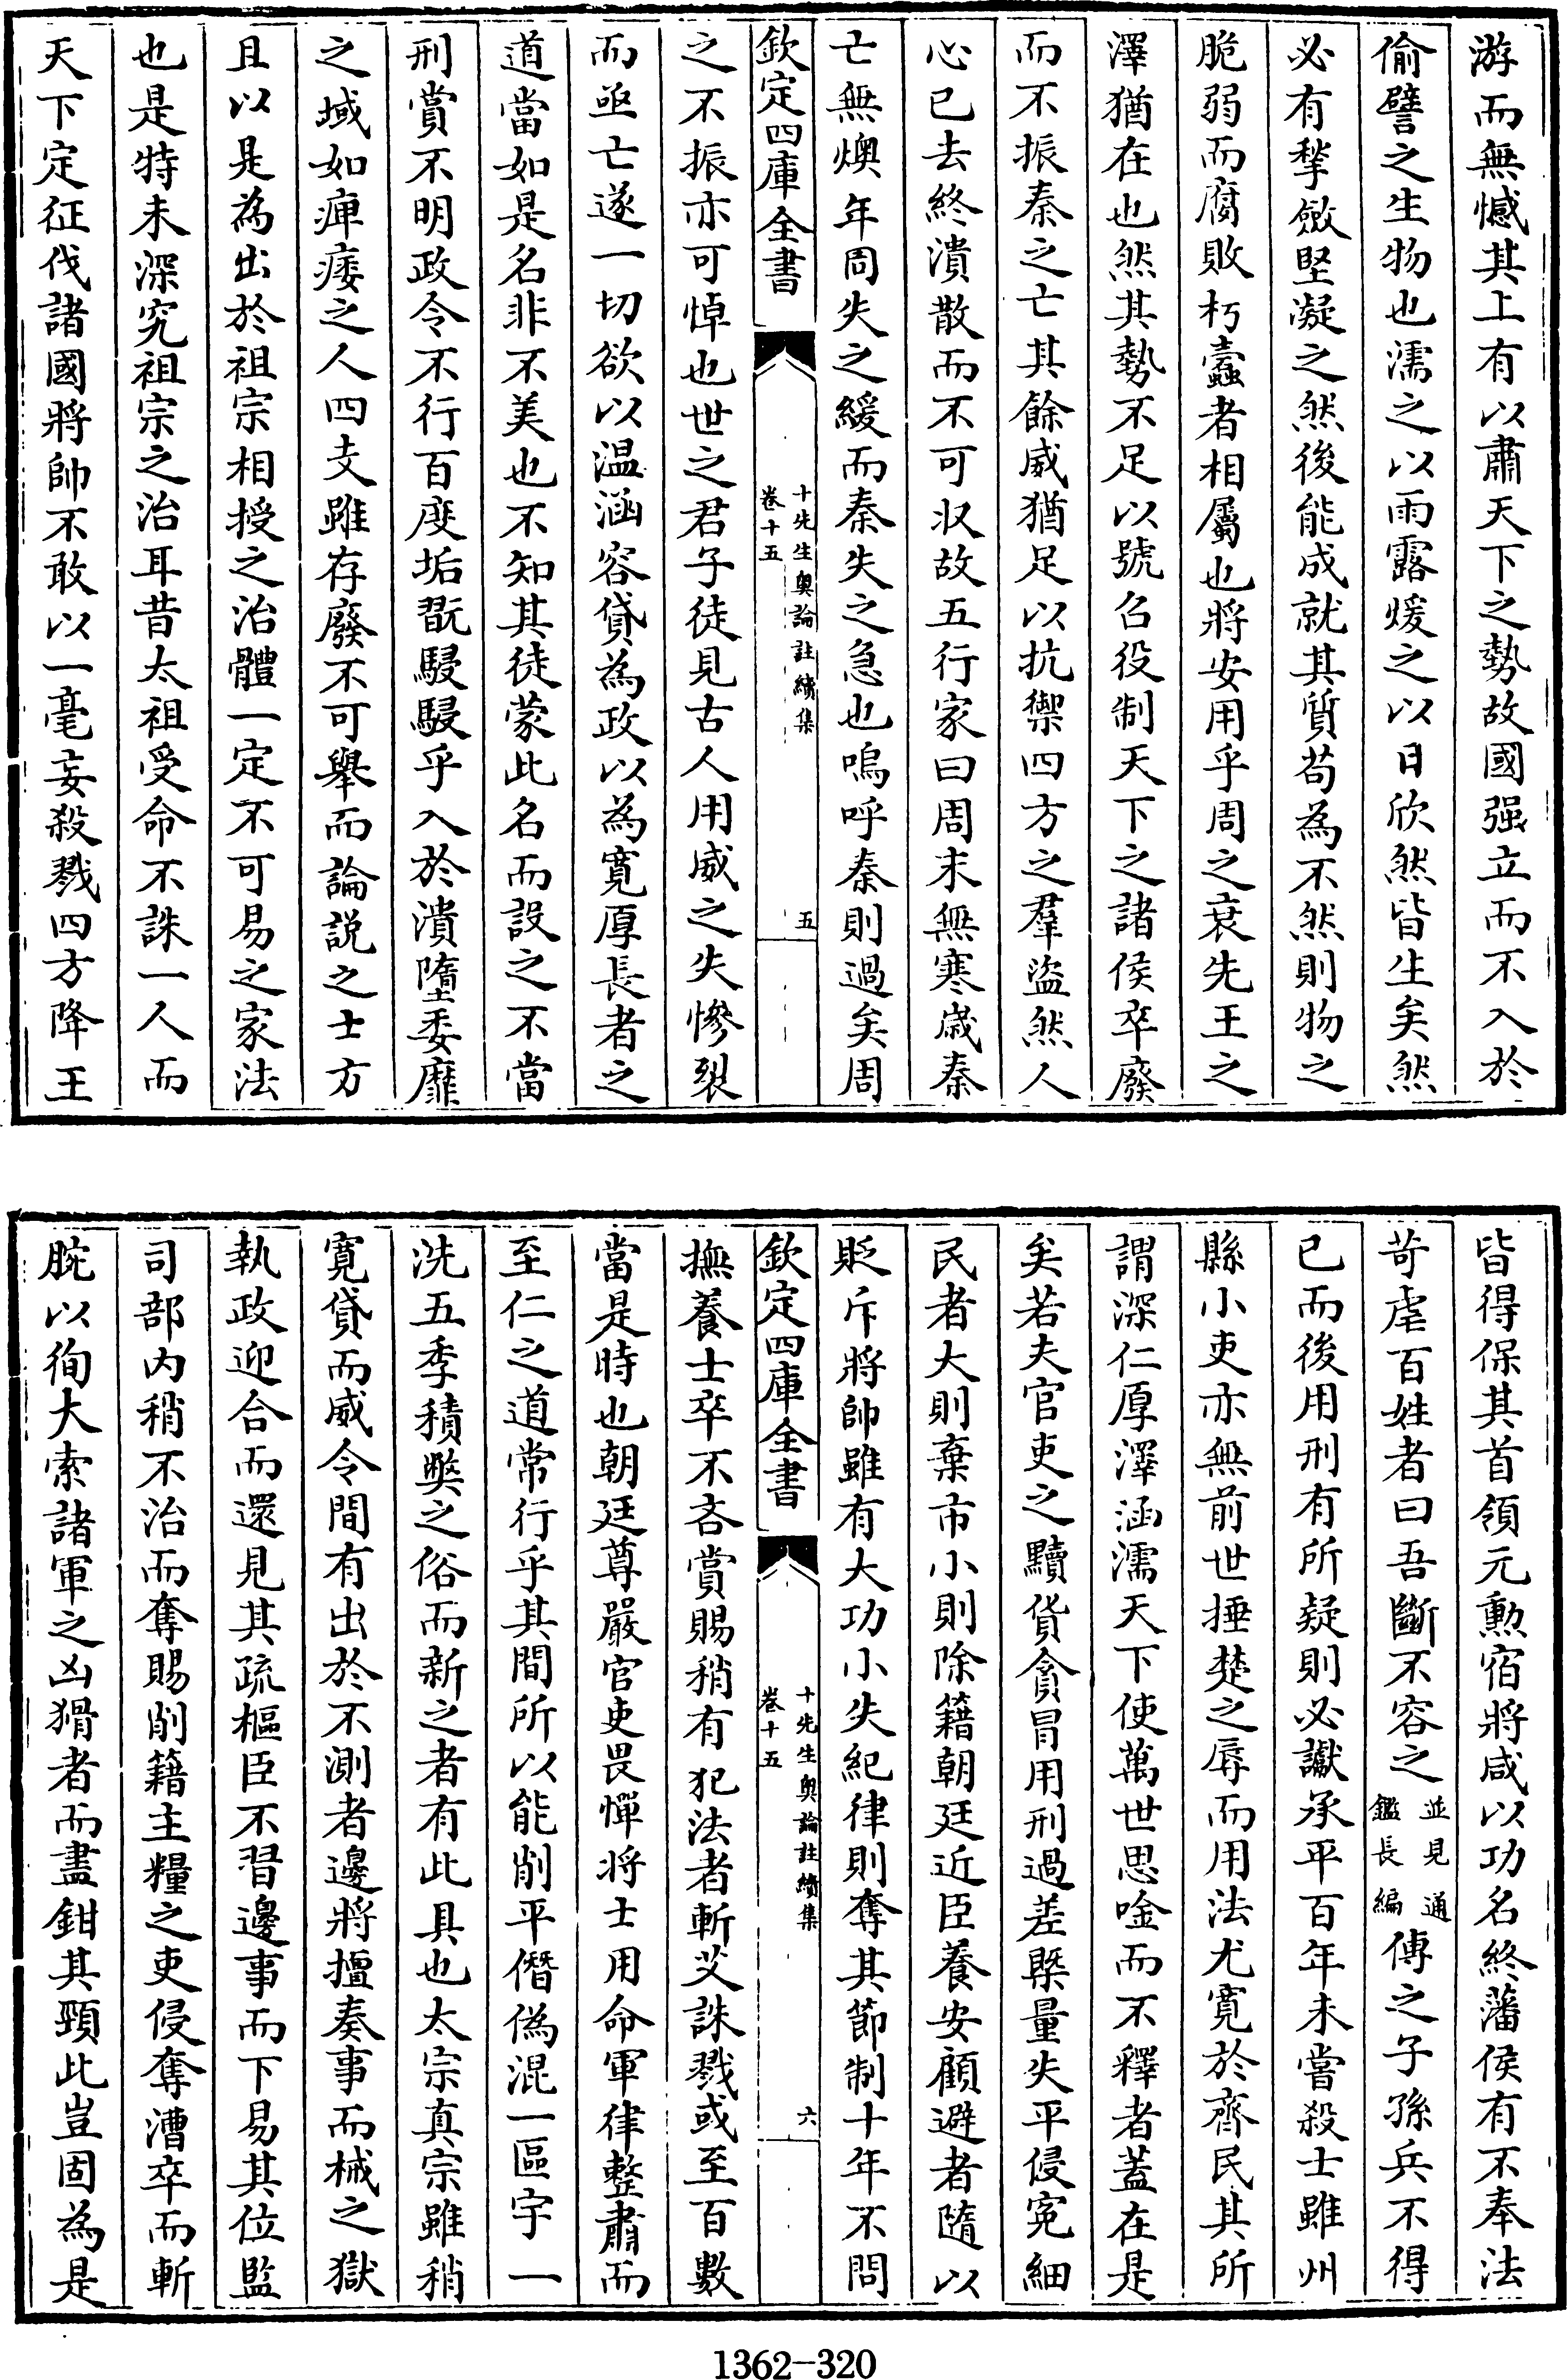 游而無憾其上有以肅天下之勢故國强立而不入於
偷譬之生物也濡之以雨露煖之以日欣然皆生矣然
必有揫斂堅凝之然後能成就其質苟為不然則物之
脆弱而腐敗朽蠹者相屬也將安用乎周之衰先王之
澤猶在也然其勢不足以號召役制天下之諸侯卒廢
而不振秦之亡其餘威猶足以抗禦四方之羣盜然人
心已去終潰散而不可収故五行家曰周末無寒歲秦
亡無燠年周失之緩而秦失之急也嗚呼秦則過矣周
欽定四庫全書
十先生奥論註續集
卷十五
五
之不振亦可悼也世之君子徒見古人用威之失慘裂
而亟亡遂一切欲以温涵容貸為政以為寛厚長者之
道當如是名非不美也不知其徒蒙此名而設之不當
刑賞不明政令不行百度垢翫駸駸乎入於潰墮委靡
之域如痺痿之人四支雖存廢不可舉而論説之士方
且以是為出於祖宗相授之治體一定不可易之家法
也是特未深究祖宗之治耳昔太祖受命不誅一人而
天下定征伐諸國將帥不敢以一毫妄殺戮四方降王
皆得保其首領元勲宿將咸以功名終藩侯有不奉法
苛虐百姓者曰吾斷不容之
並見通
鑑長編
傳之子孫兵不得
已而後用刑有所疑則必讞承平百年未嘗殺士雖州
縣小吏亦無前世捶楚之辱而用法尤寛於齊民其所
謂深仁厚澤涵濡天下使萬世思唫而不釋者蓋在是
矣若夫官吏之黷貨貪冒用刑過差槩量失平侵寃細
民者大則棄市小則除籍朝廷近臣養安顧避者隨以
貶斥將帥雖有大功小失紀律則奪其節制十年不問
欽定四庫全書
十先生奥論註續集
卷十五
六
撫養士卒不吝賞賜稍有犯法者斬艾誅戮或至百數
當是時也朝廷尊嚴官吏畏憚將士用命軍律整肅而
至仁之道常行乎其間所以能削平僭偽混一區宇一
洗五季積弊之俗而新之者有此具也太宗真宗雖稍
寛貸而威令間有出於不測者邊將擅奏事而械之獄
執政迎合而還見其疏樞臣不習邊事而下易其位監
司部内稍不治而奪賜削籍主糧之吏侵奪漕卒而斬
腕以徇大索諸軍之凶猾者而盡鉗其頸此豈固為是
1362-320